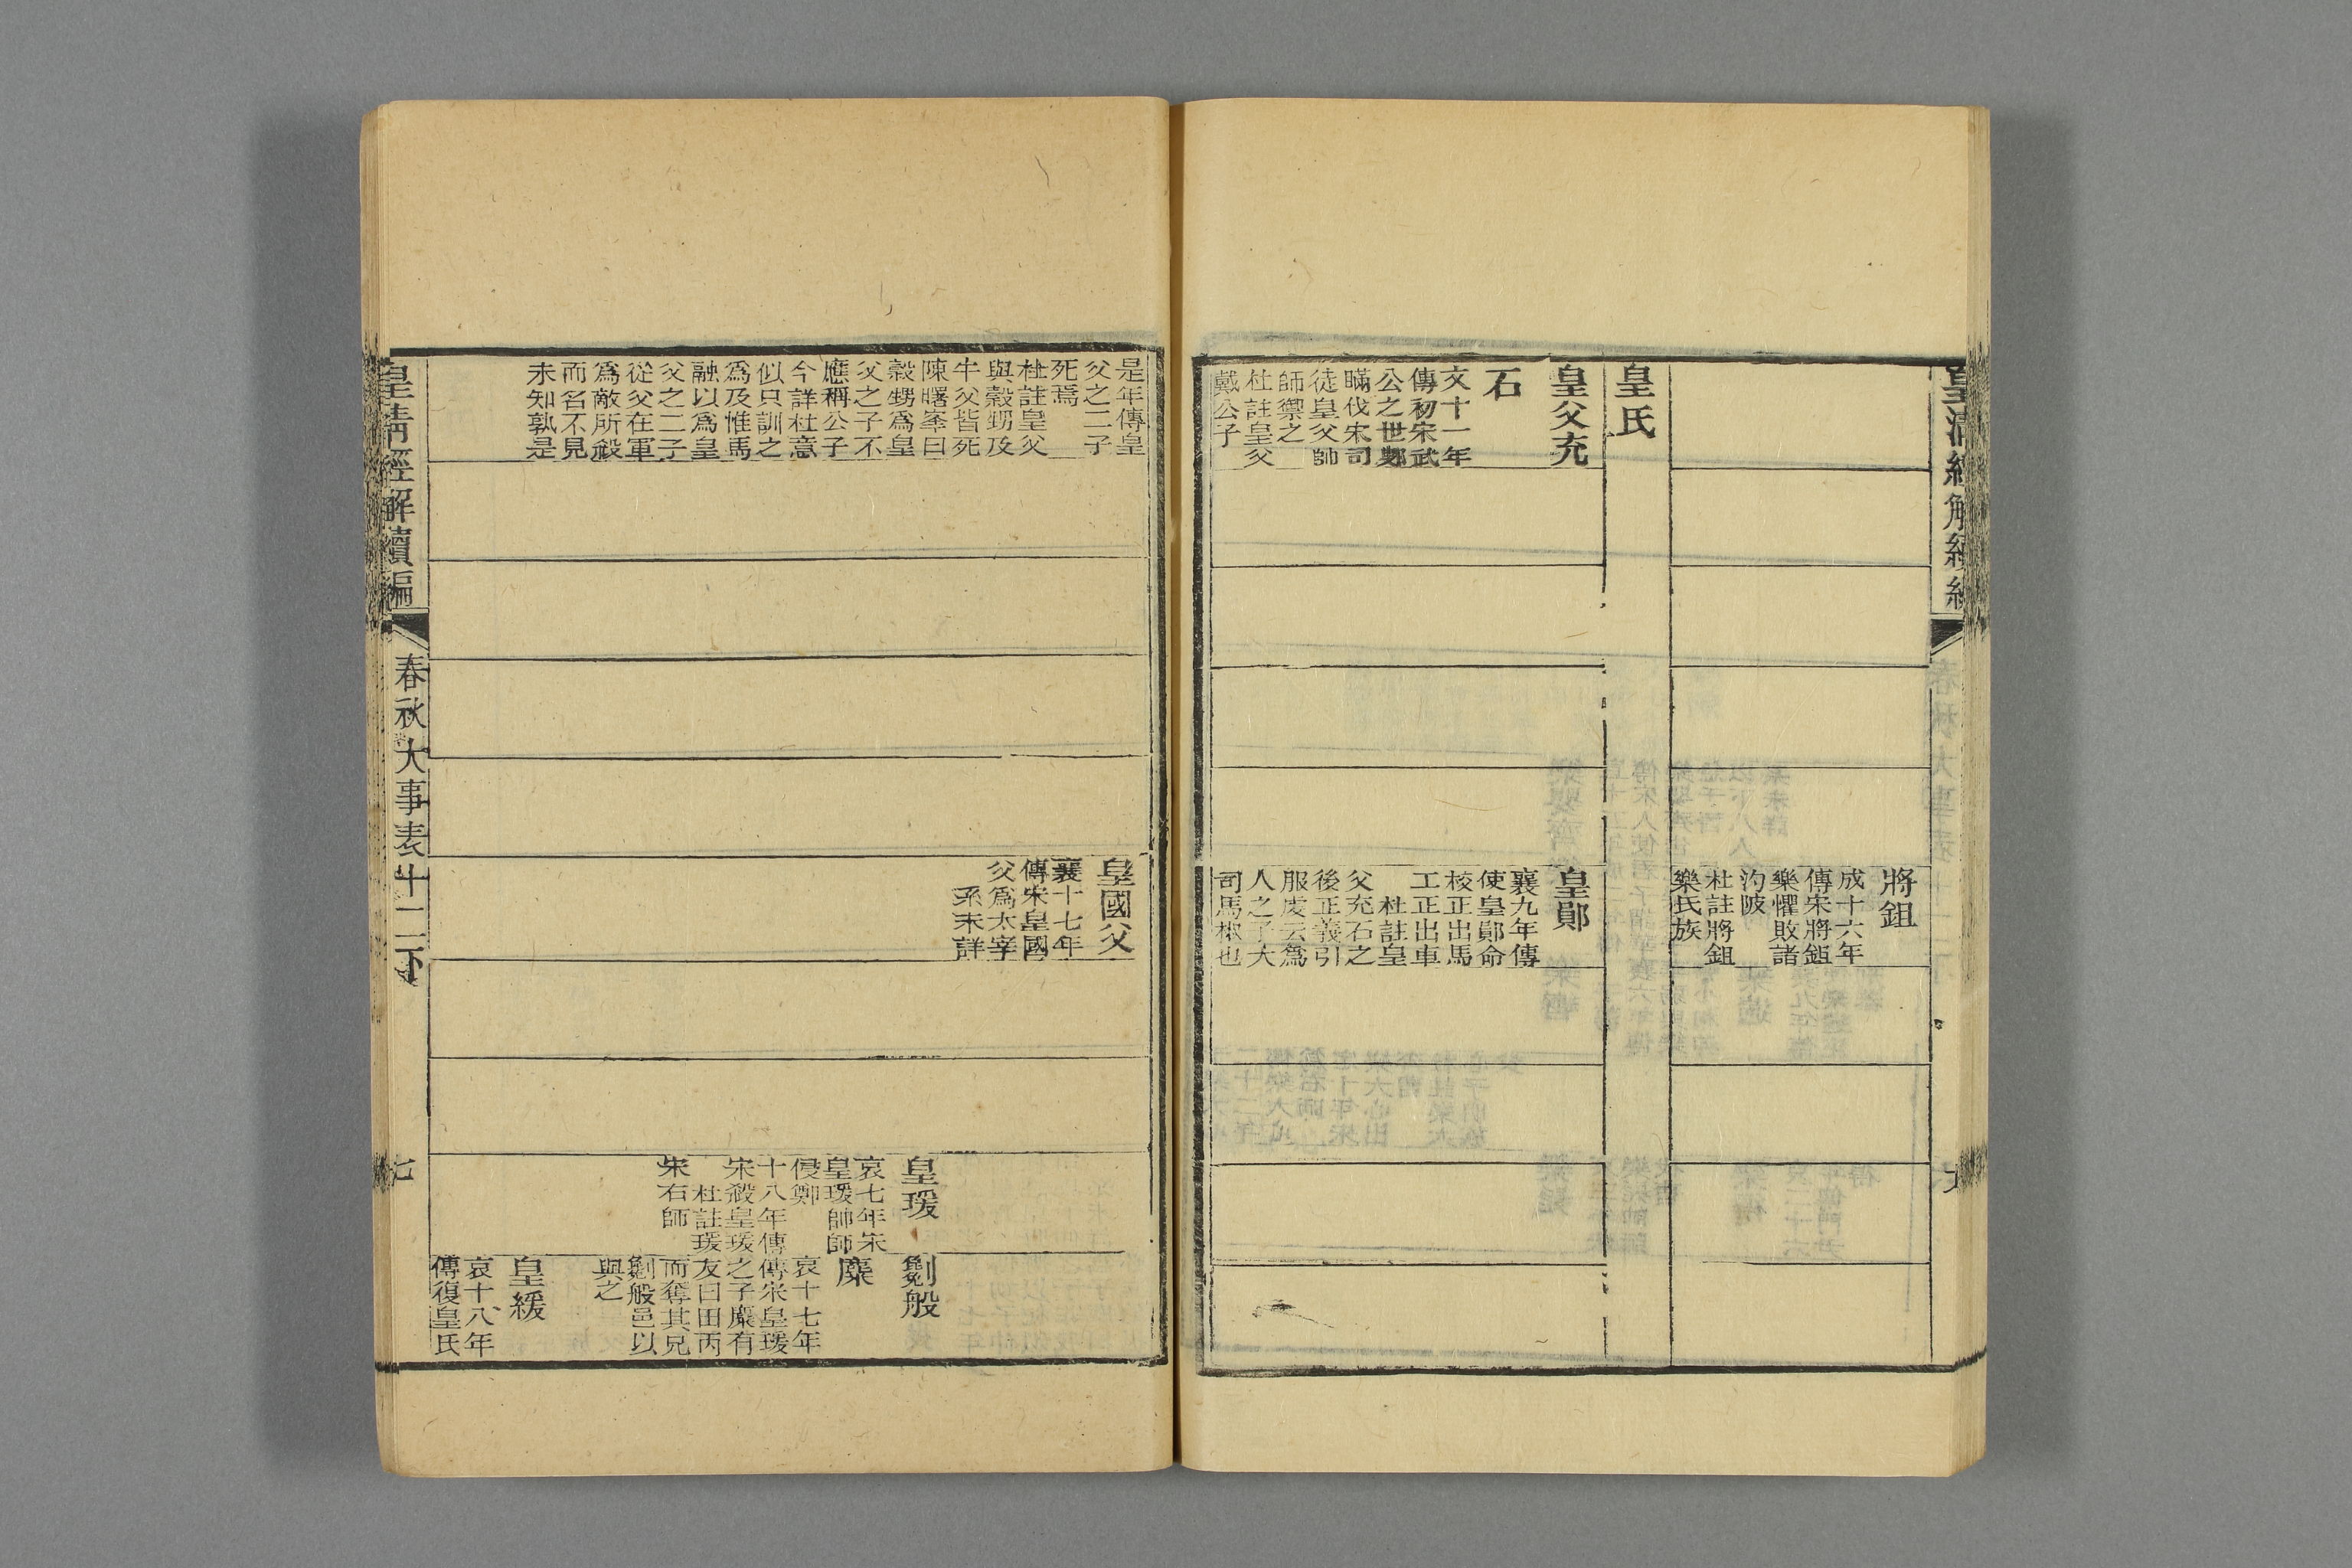 將鉏
成十六年
傳宋將鉏
樂懼敗諸
汋陂
杜註將鉏
樂氏族
皇氏
皇父充
石
文十一年
傳初宋武
公之世鄋
瞞伐宋司
徒皇父帥
師禦之
杜註皇父
戴公子
皇鄖
襄九年傳
使皇鄖命
校正出馬
工正出車
杜註皇
父充石之
後正義引
服虔云爲
人之子大
司馬椒也
是年傳皇
父之二子
死焉
杜註皇父
與穀甥及
牛父皆死
陳曙峯曰
穀甥爲皇
父之子不
應稱公子
今詳杜意
似只訓之
爲及惟馬
融以爲皇
父之二子
從父在軍
爲敵所殺
而名不見
未知孰是
皇國父
襄十七年
傳宋皇國
父爲太宰
系未詳
皇瑗
哀七年宋
皇瑗帥師
侵鄭
十八年傳
宋殺皇瑗
杜註瑗
宋右師
劖般
麇
哀十七年
傳宋皇瑗
之子麇有
友曰田丙
而奪其兄
劖般邑以
與之
皇緩
哀十八年
傳復皇氏
皇清經解續編
春秋大事表十二下
七